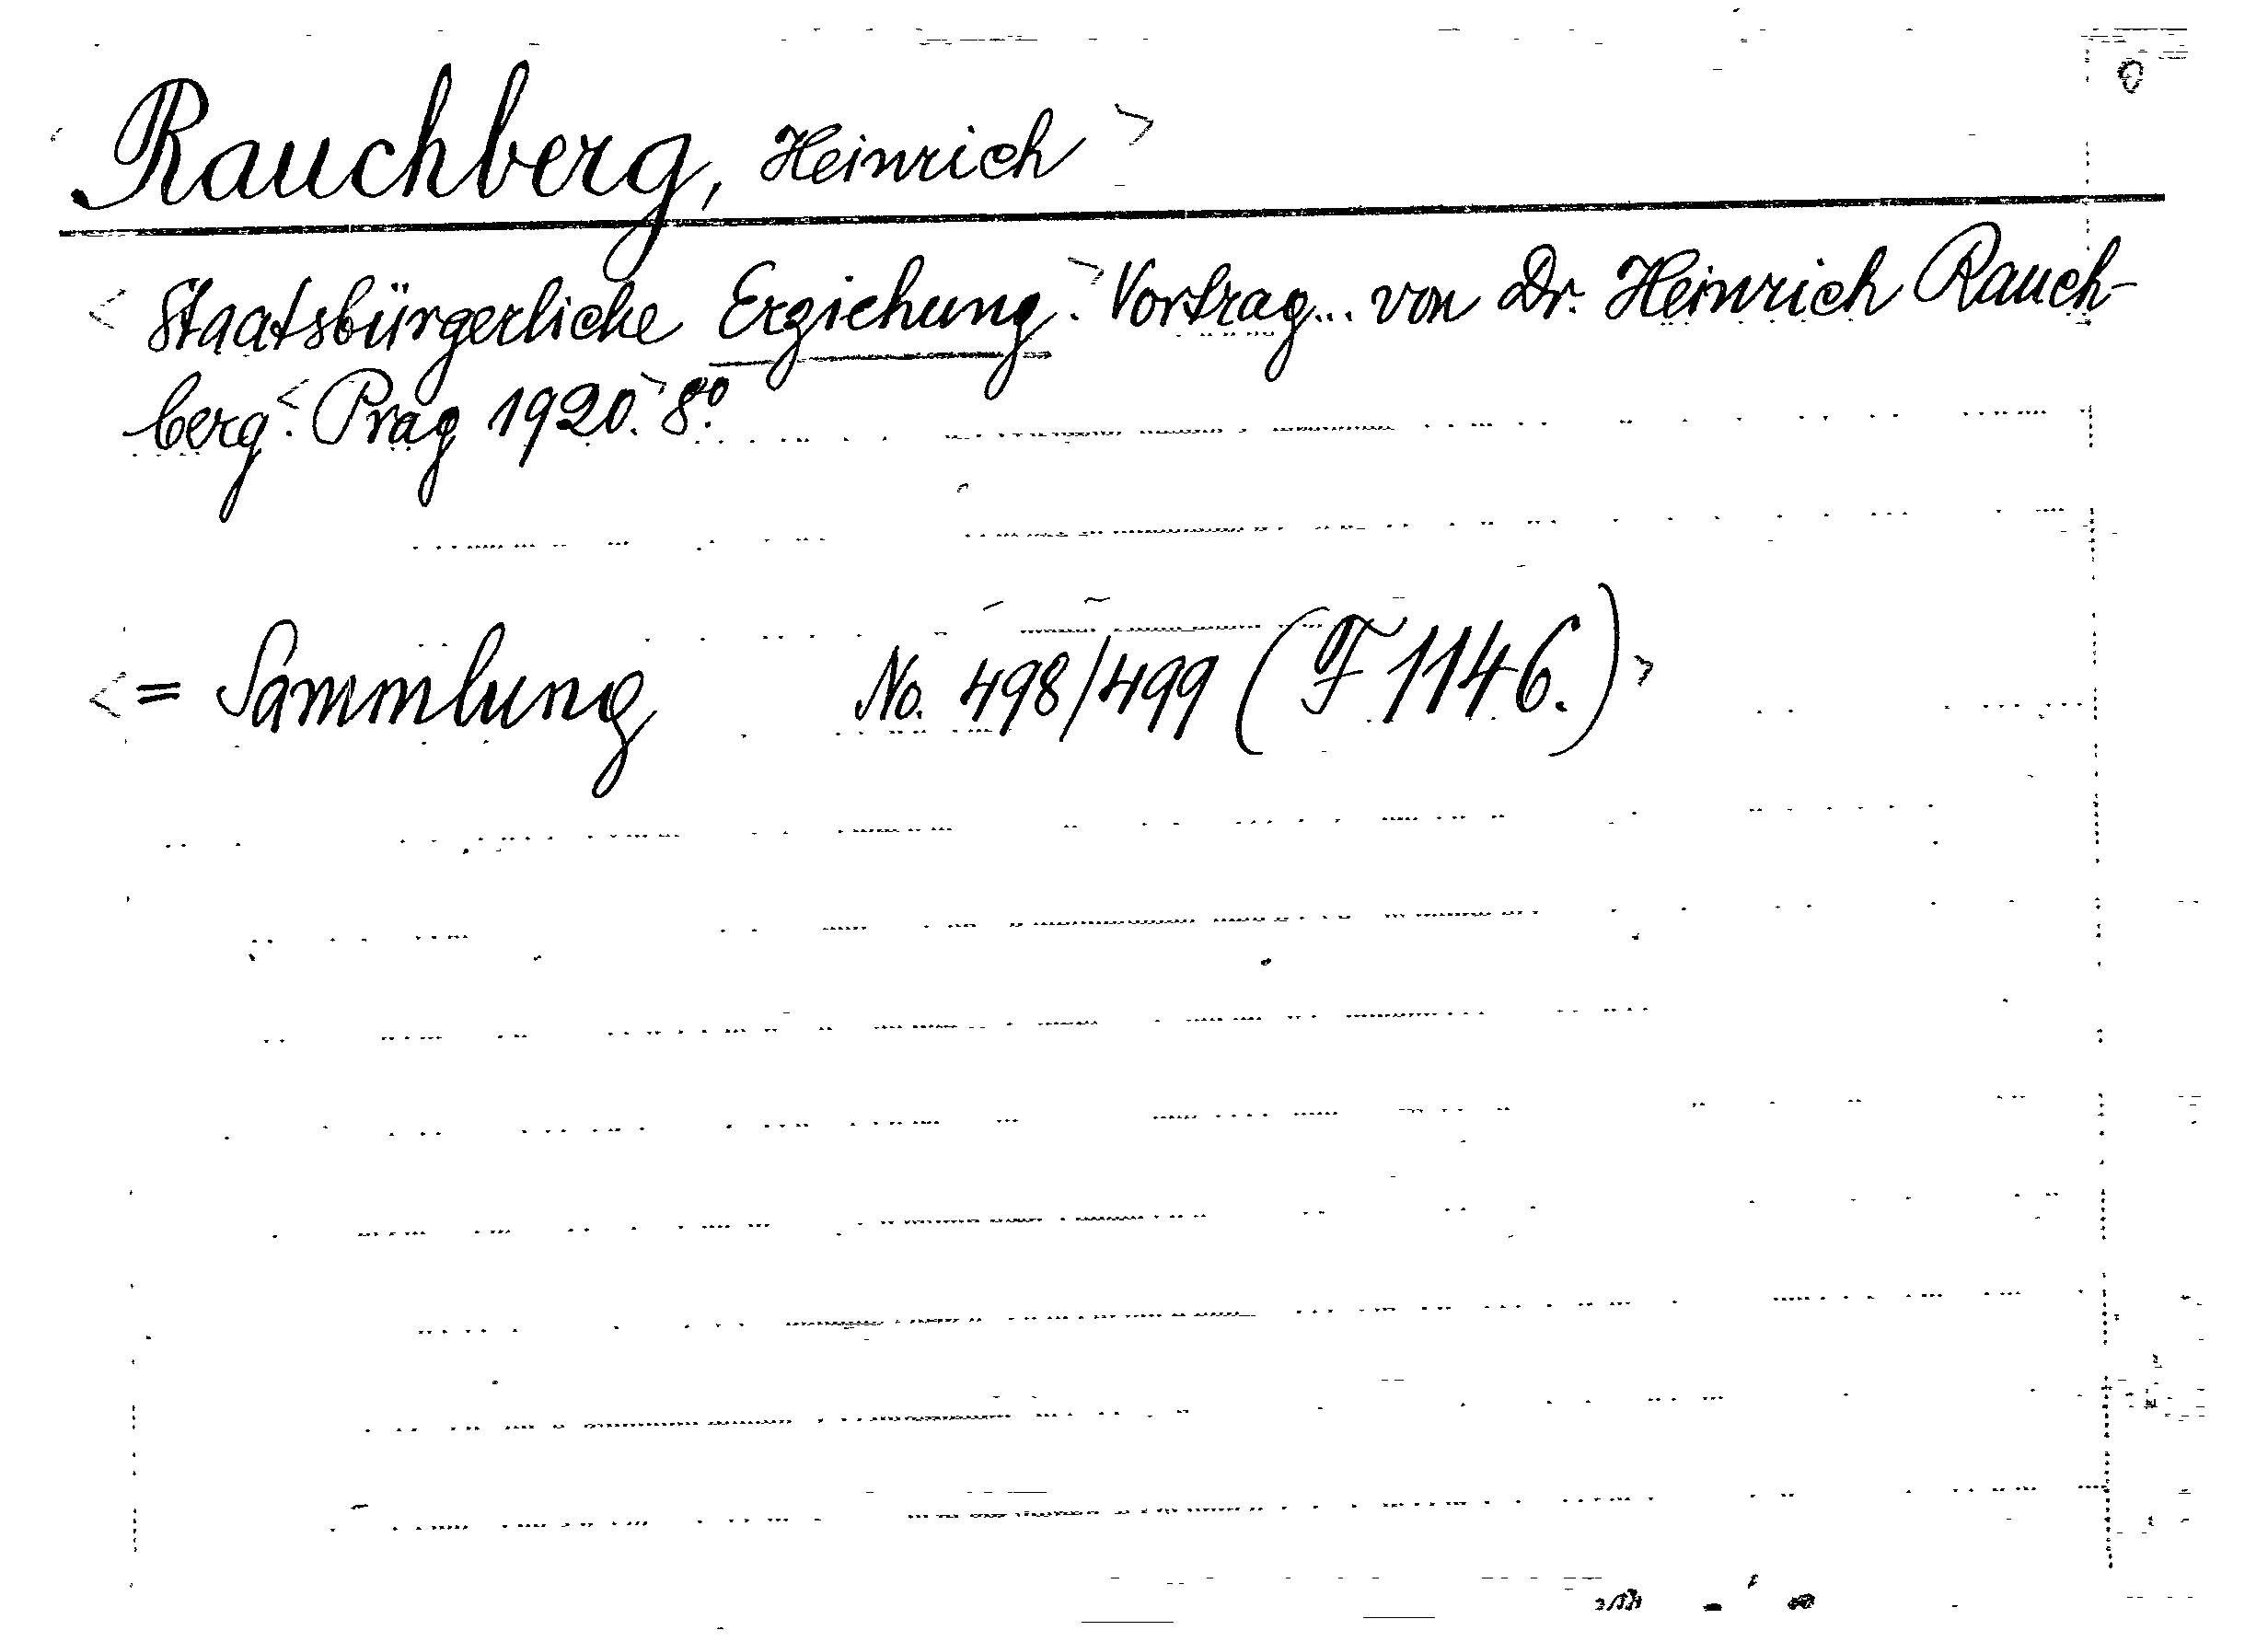 <Rauchberg, Heinrich>
<Staatsbürgerliche Erziehung.> Vortrag... von Dr. Heinrich Rauch-
berg. <Prag 1920.> 8°.
<= Sammlung No. 498/499 (F 1146.)>